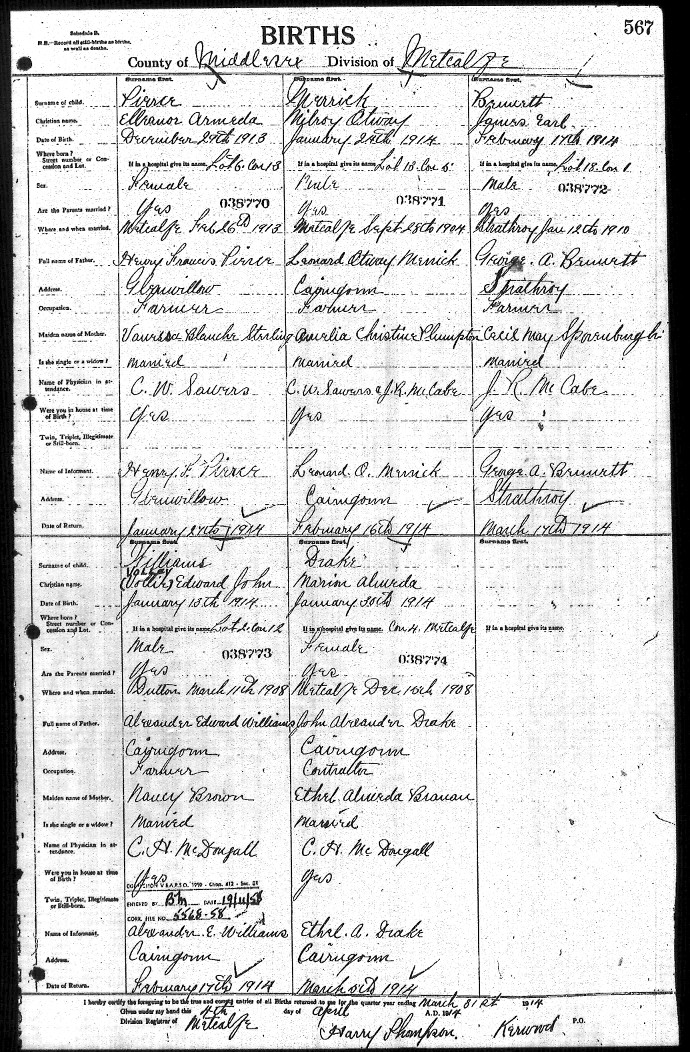 Schedule B.
N.B.—Record all still-births as births, as well as deaths.
BIRTHS
567
County of Middlesex Division of Metcalfe
Surname first. Surname first. Surname first.
Surname of child. Pierce Merrick Bennett
Christian name. Elleanor Armeda Milroy Otway James Earl
Date of Birth. December 29th 1913 January 24th 1914 February 17th 1914
Where born? Street number or Concession and Lot. If in a hospital give its name. Lot 6 Con 13 If in a hospital give its name. Lot 13 Con 5 If in a hospital give its name. Lot 18 Con 1
Sex. Female Male Male
038770 038771 038772
Are the Parents married? Yes Yes Yes
Where and when married. Metcalfe Feb 26th 1913 Metcalfe Sept 28th 1904 Strathroy Jan 12th 1910
Full name of Father. Henry Francis Pierce Leonard Otway Merrick George A. Bennett
Address. Glenwillow Cairngorm Strathroy
Occupation. Farmer Farmer Farmer
Maiden name of Mother. Vanessa Blanche Sterling Amelia Christine Plumpton Cecil May
Is she single or a widow? married married married
Name of Physician in attendance. C. W. Sawers C. W. Sawers & J. R. McCabe J. R. McCabe
Were you in house at time of Birth? Yes Yes Yes
Twin, Triplet, Illegitimate or Still-born.
Name of Informant. Henry F. Pierce Leonard O. Merrick George A. Bennett
Address. Glenwillow Cairngorm Strathroy
Date of Return. January 27th 1914 February 16th 1914 March 17th 1914
Surname first. Surname first. Surname first.
Surname of child. Williams Drake
VOLLEY
Christian name. (Vollie) Edward John Marion Almeda
Date of Birth. January 13th 1914 January 30th 1914
Where born? Street number or Concession and Lot. If in a hospital give its name. Lot 2 Con 12 If in a hospital give its name. Con 4. Metcalfe If in a hospital give its name.
Sex. Male Female
038773 038774
Are the Parents married? Yes Yes
Where and when married. Dutton March 11th 1908 Metcalfe Dec 16th 1908
Full name of Father. Alexander Edward Williams John Alexander Drake
Address. Cairngorm Cairngorm
Occupation. Farmer Contractor
Maiden name of Mother. Nancy Brown Ethel Almeda Branan
Is she single or a widow? Married Married
Name of Physician in attendance. C. H. McDougall C. H. McDougall
Were you in house at time of Birth? Yes Yes
V.S.A. R.S.O. 1950 - Chap. 412 - Sec.
Twin, Triplet, Illegitimate or Still-born. ENTERED BY Bm DATE 19/11/58
CORR. FILE NO 5568-58
Name of Informant. Alexander E. Williams Ethel A. Drake
Address Cairngorm Cairngorm
Date of Return. February 17th 1914 March 5th 1914
I hereby certify the foregoing to be the true and correct entries of all Births returned to me for the quarter year ending March 31st 1914
Given under my hand this 4th day of April A.D. 1914
Division Registrar of Metcalfe Harry Thompson. Kerwood P.O.